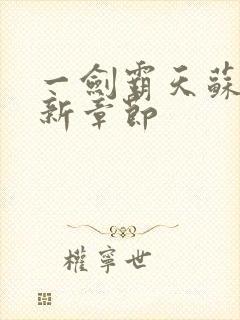 一劍霸天蘇
新章節
權寧世